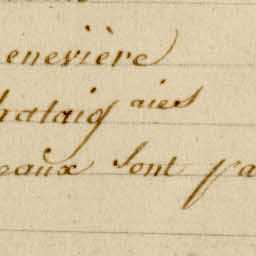 enevière
hataig aies
eaux sont pa